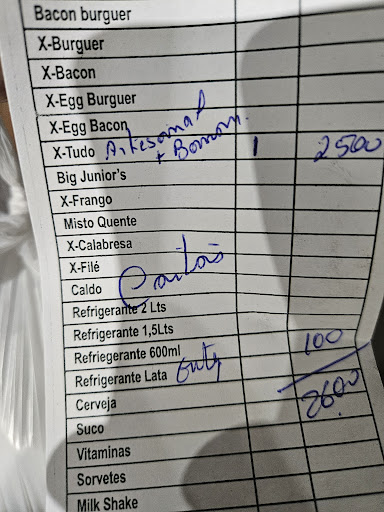 Bacon burguer
X-Burguer
X-Bacon
X-Egg Burguer
X-Egg Bacon
X-Tudo Artesanal + Bomom. 1 2500
Big Junior's
X-Frango
Misto Quente
X-Calabresa
X-Filé
Caldo Cartão
Refrigerante 2 Lts
Refrigerante 1,5Lts
Refriegerante 600ml 100
Refrigerante Lata
Cerveja 2600
Suco
Vitaminas
Sorvetes
Milk Shake